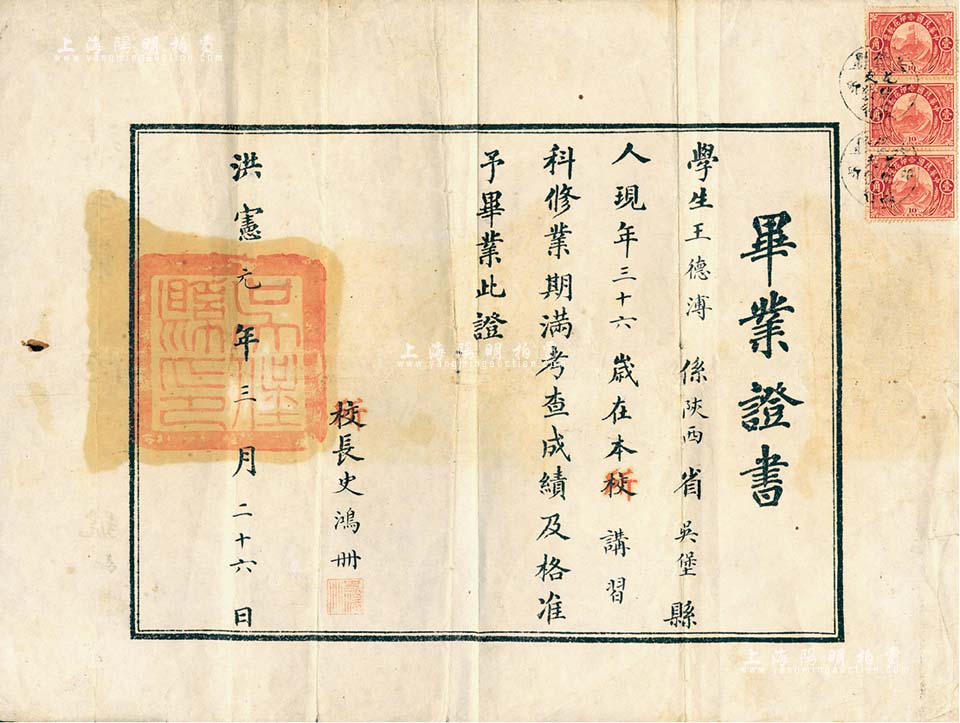 畢業證書
學生王德溥係陝西省吳堡縣
人現年三十六歲在本校所講習
科修業期滿考查成績及格准
予畢業此證
校所長史鴻冊
洪憲元年三月二十六日
上海陽明拍賣
www.yangmingauction.com
上海陽明拍賣
www.yangmingauction.com
上海陽明拍賣
www.yangmingauction.com
壹
角
10
壹
角
10
壹
角
10